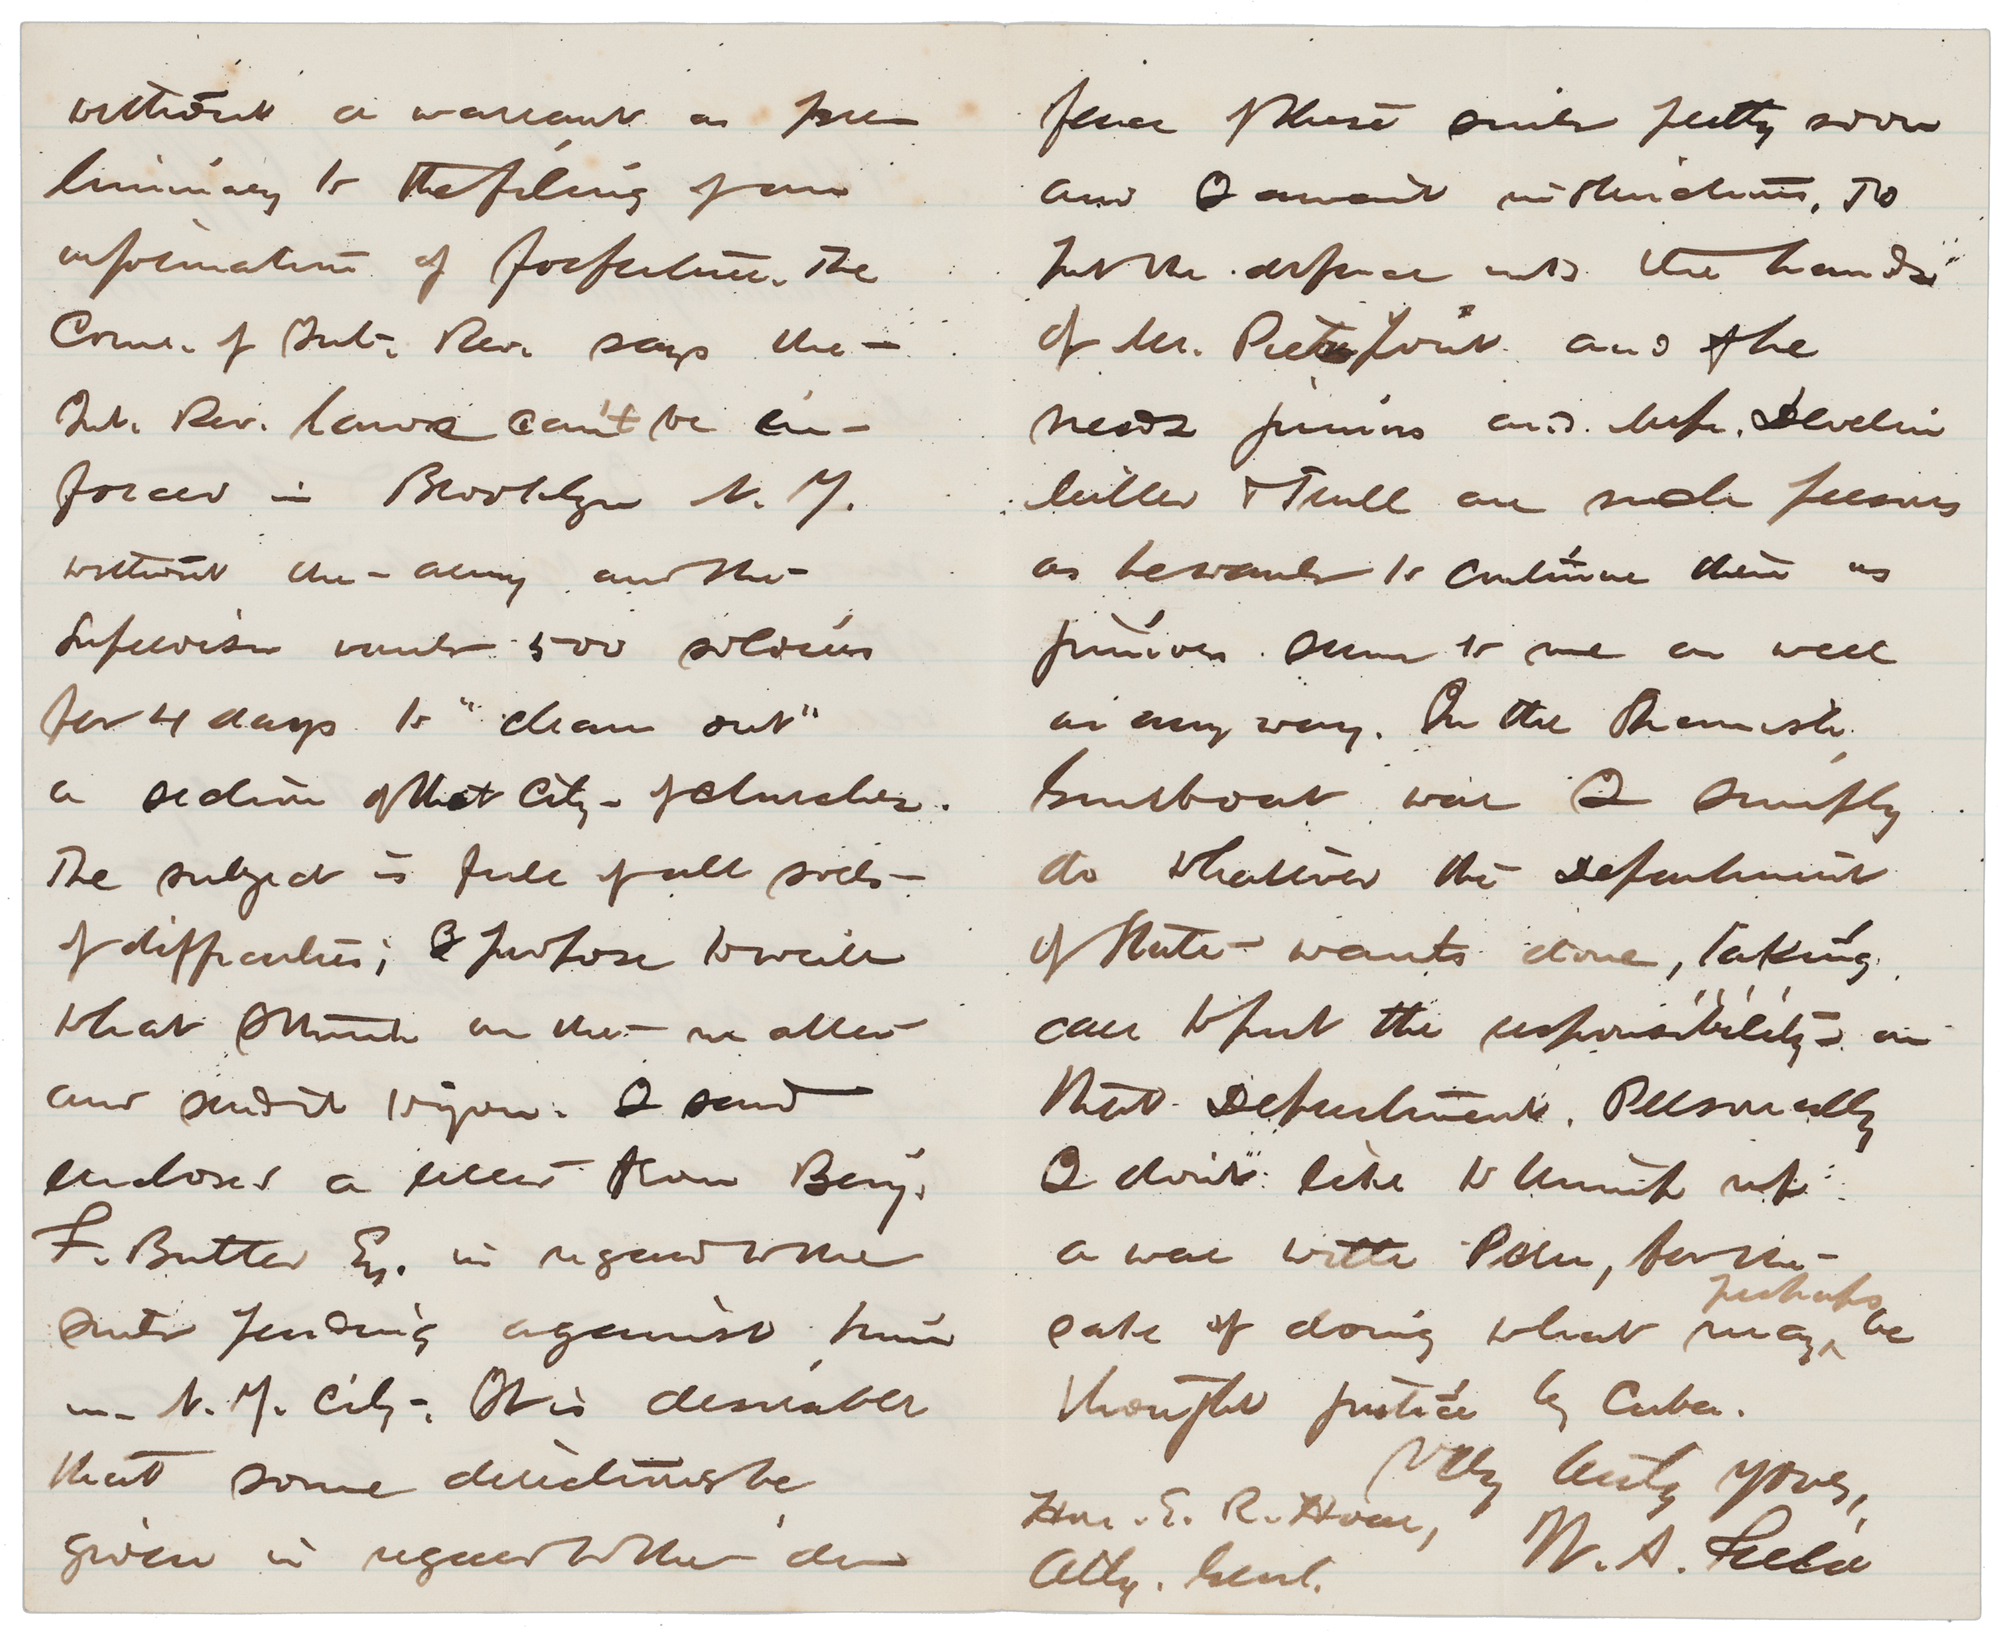 without a warrant as pre-
liminary to the filing of an
information of forfeiture. The
Comr. of Int. Rev. says the
Int. Rev. laws can't be en-
forced in Brooklyn N. Y.
without the army and the
Supervisor wants 500 soldiers
for 4 days to "clean out"
a section of that City of churches.
The subject is full of all sorts
of difficulties; I propose to write
what I think on the matter
and send it to you. I send
enclosed a letter from Benj.
F. Butler Esq. in regard to the
suits pending against him
in N. Y. City. It is desirable
that some directions be
given in regard to the de-
fence of these suits pretty soon
and I await instructions. To
put the defence into the hands
of Mr. Pierrepont and if he
needs juniors and Messrs. Develin
Miller & Trull are such persons
as he wants to continue them as
juniors seems to me as well
as any way. In the Spanish
Gunboat war I simply
do whatever the Department
of State wants done, taking
care to put the responsibility on
that Department. Personally
I don't like to trump up
a war with Peru, for the
sake of doing what may perhaps be
thought justice by Cuba.
Very truly yours,
Hon. E. R. Hoar, W. A. Field
Atty. Genl.